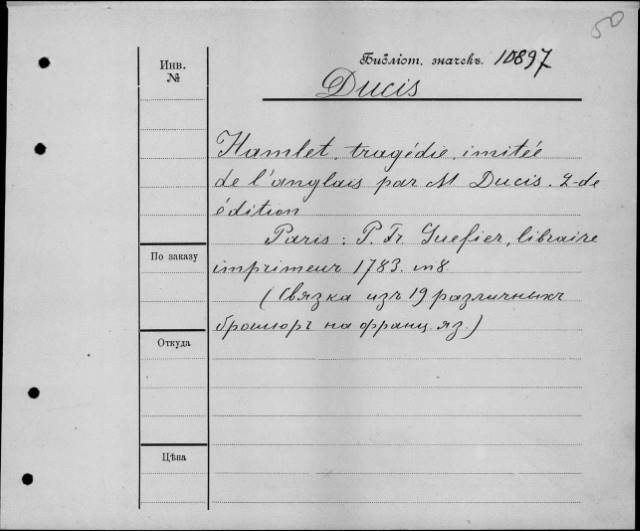 50
Инв.
№
Библіот. значекъ. 10897
Ducis
Hamlet, tragédie, imitée
de l'anglais par M Ducis. 2-de
édition
Paris: P. Fr. Guefier, libraire
imprimeur 1783. in 8.
(Связка изъ 19 различныхъ
брошюръ на франц. яз.)
По заказу
Откуда
Цѣна